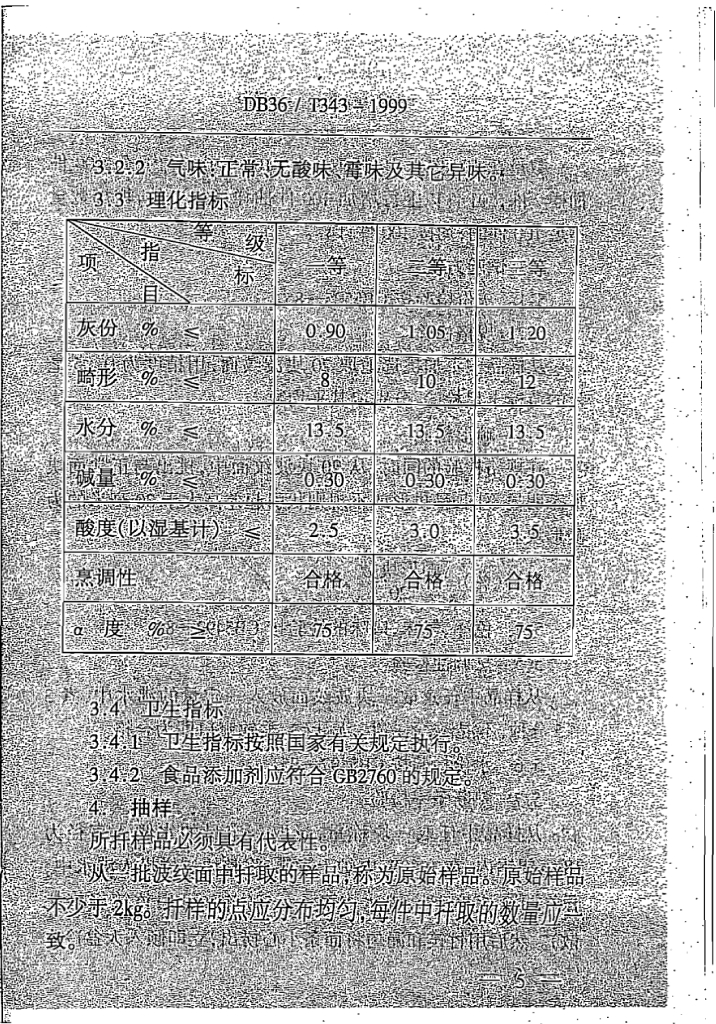 DB36 / T343－1999
3.2.2　气味:正常,无酸味、霉味及其它异味。
3.3　理化指标
等　级
指　标
项　目
一等　二等　三等
灰份　%　≤　0.90　1.05　1.20
畸形　%　≤　8　10　12
水分　%　≤　13.5　13.5　13.5
碱量　%　≤　0.30　0.30　0.30
酸度(以湿基计)　≤　2.5　3.0　3.5
烹调性　合格　合格　合格
α　度　%　≥　75　75　75
3.4　卫生指标
3.4.1　卫生指标按照国家有关规定执行。
3.4.2　食品添加剂应符合 GB2760 的规定。
4　抽样
所扦样品必须具有代表性。
从一批波纹面中扦取的样品,称为原始样品。原始样品
不少于 2kg。扦样的点应分布均匀,每件中扦取的数量应一
致。
— 5 —